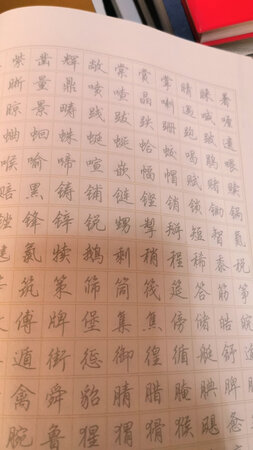 紫凿辉敞棠赏掌晴睐暑
晰量鼎喳晶喇遇
晾景畴践跋跌跚跑跛遗
蛐蛔蛛蜓蜒蛤蛟喝鹃喂
喉喻啼喧嵌幅帽赋赌赎
赔黑铸铺链铿销锁锄锅
锉锋锌锐甥掣掰短智氰
毽氯犊鹅剩稍程稀黍税
筑策筛筒筏筵答筋筝
傅牌堡集焦傍储皓皖
遁街惩御徨循艇舒
禽舜貂腈腊腌腆脾
腕鲁猩猬猾猴飓惫